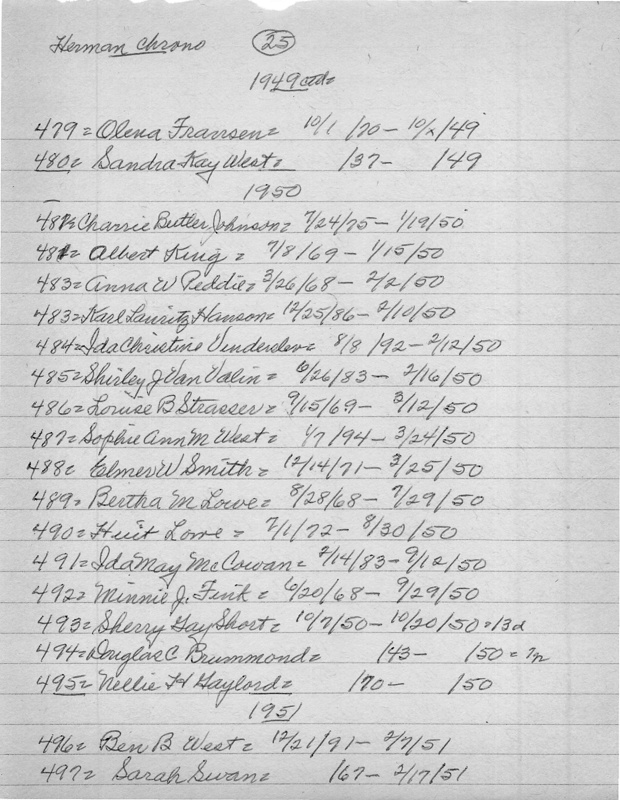 Herman Chrono 25
1949 ctd=
479= Olena Fransen= 10/1 /70- 10/x/49
480= Sandra Kay West= /37- /49
1950
Charrie Butler Johnson= 7/24/75- 1/19/50
Albert King= 7/8/69- 1/15/50
483= Anna W Peddie= 3/26/68- 2/2/50
483= Karl Lauritz Hanson= 12/25/86- 2/10/50
484= Ida Christine 8/8 /92- 2/12/50
485= Shirley J Van Valin= 6/26/83- 2/16/50
486= Louise B Strasser= 9/15/69- 3/12/50
487= Sophie Ann M West= 1/7/94- 3/24/50
488= Elmer W Smith= 12/14/71- 3/25/50
489= Bertha M Lowe= 8/28/68- 7/29/50
490= Huit Lowe= 7/1/72- 8/30/50
491= Ida May McCowan= 2/14/83- 9/12/50
492= Minnie J. Fink= 6/20/68- 9/29/50
493= Sherry Gay Short= 10/7/50- 10/20/50=13d
494= Douglas C Brummond= /43- /50=
495= Nellie H Gaylord= /70- /50
1951
496= Ben B West= 12/21/91- 2/7/51
497= Sarah Swan= /67- 2/17/51